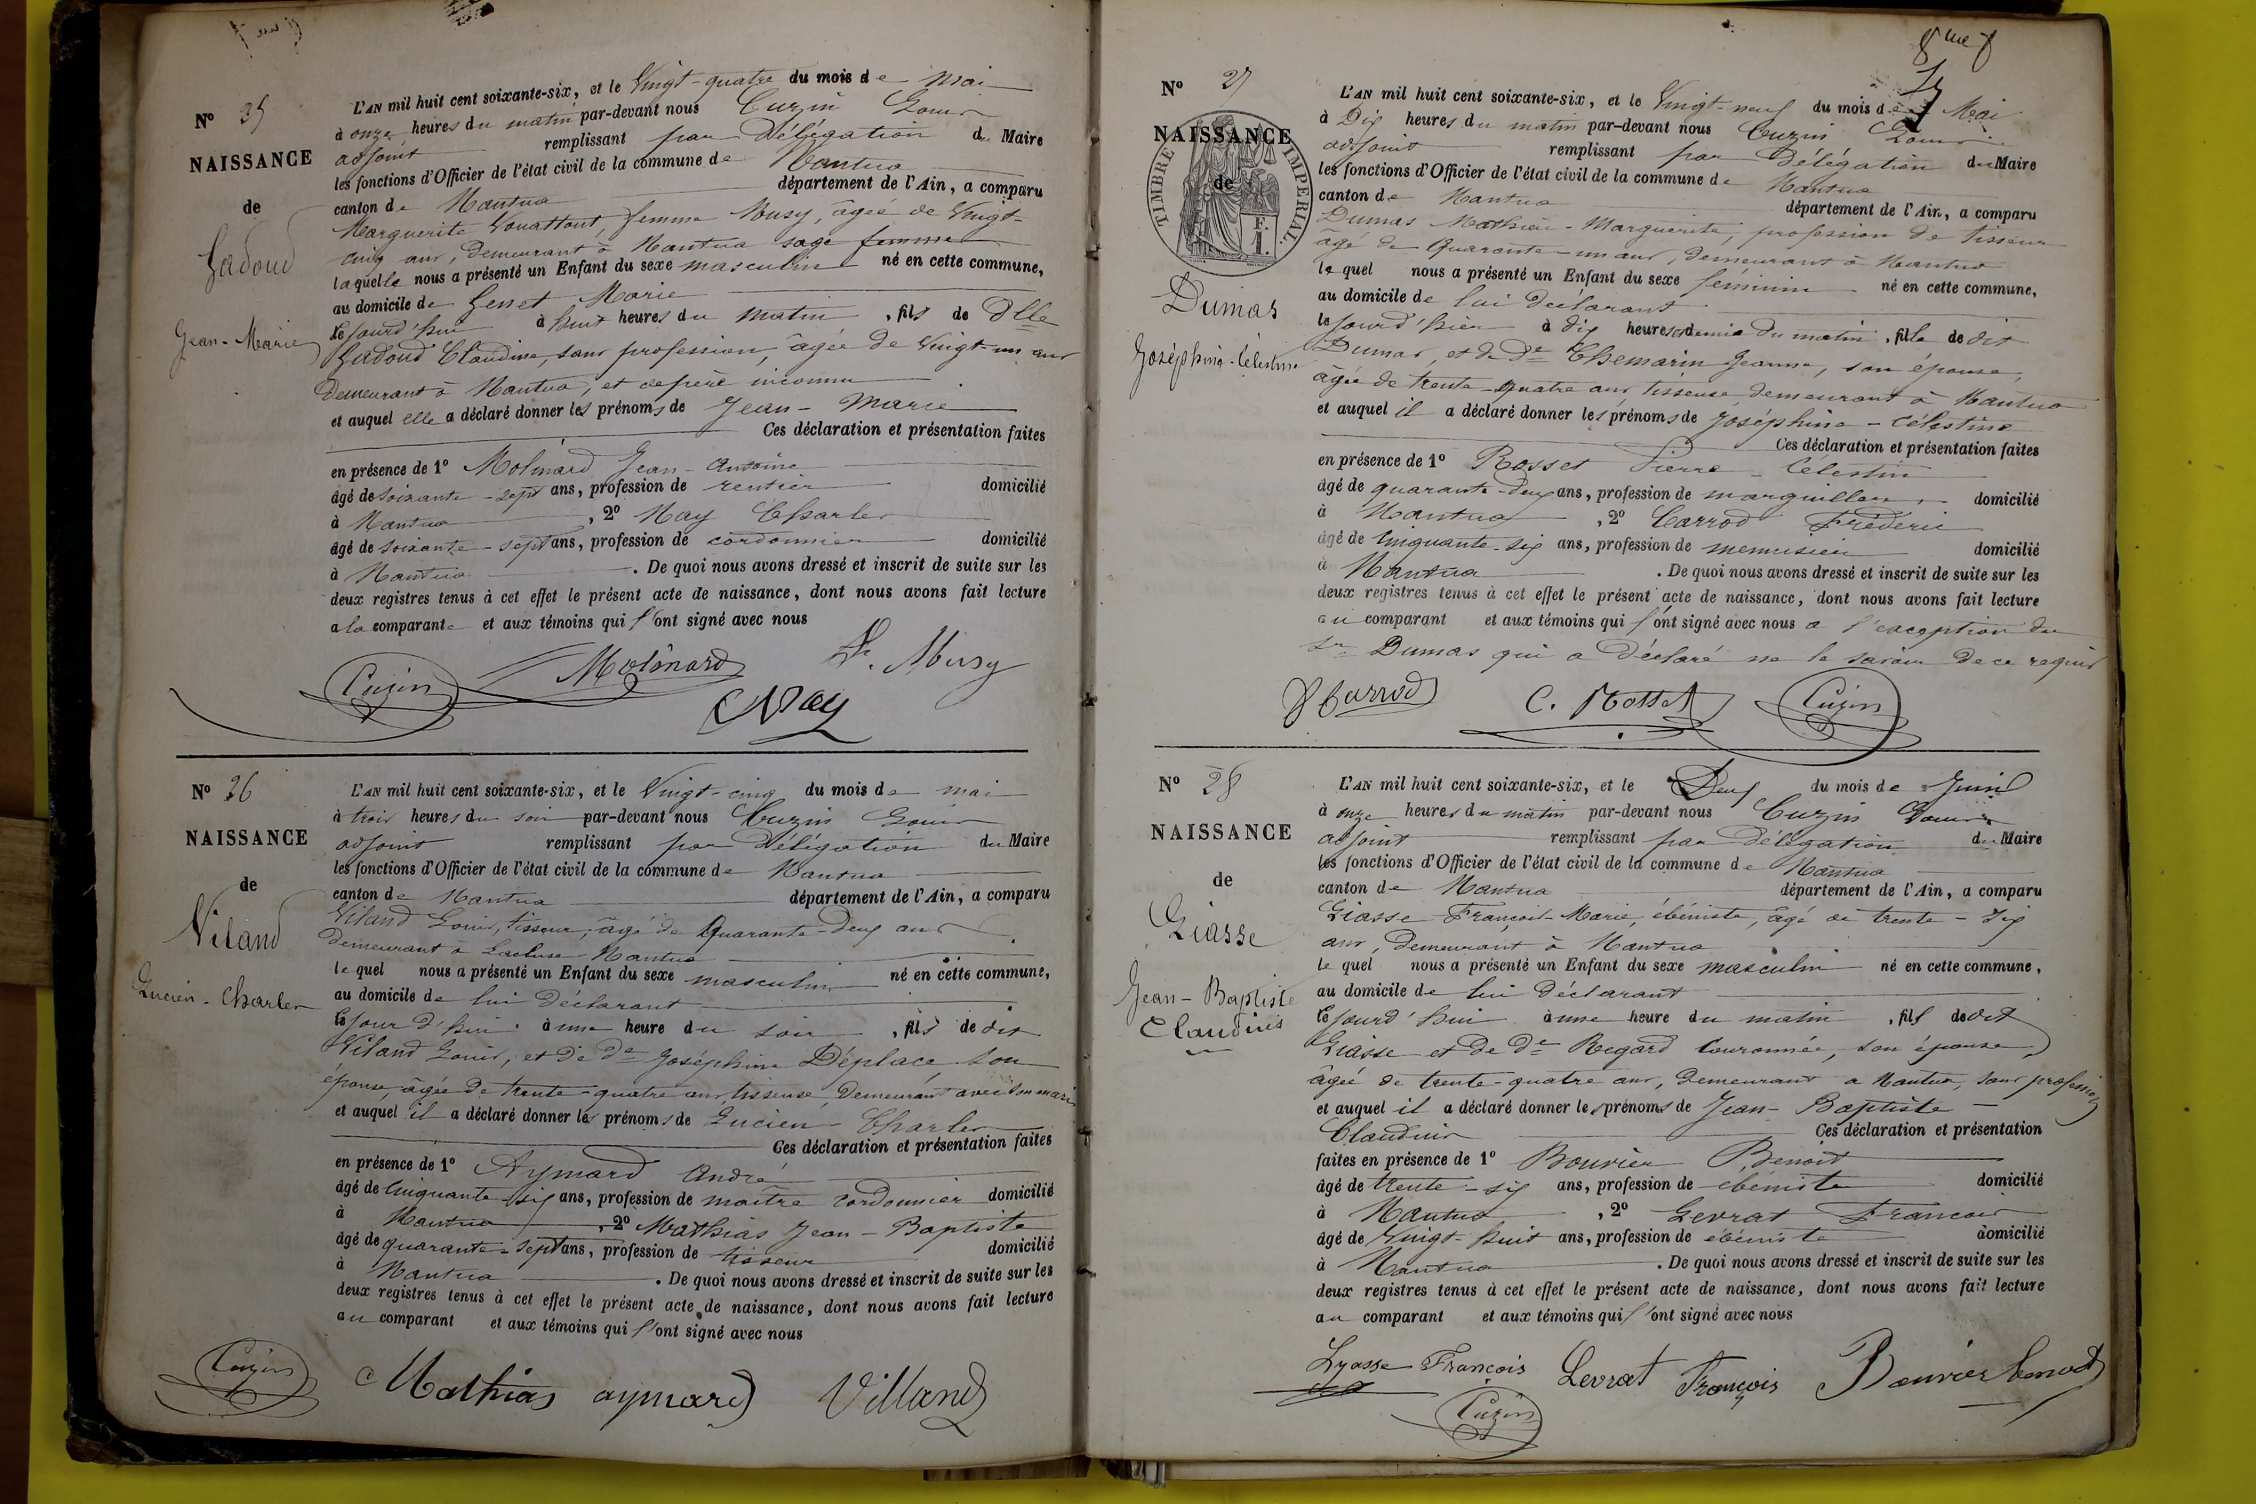 N° 25
NAISSANCE
de
Gadoud
Jean-Marie
L'AN mil huit cent soixante-six, et le Vingt-quatre du mois de Mai
à onze heures du matin par-devant nous Cuzin Louis
adjoint remplissant par Délégation du Maire
les fonctions d'Officier de l'état civil de la commune de Nantua
canton de Nantua département de l'Ain, a comparu
Marguerite femme Musy, âgée de Vingt-
cinq ans, demeurant à Nantua sage femme
laquelle nous a présenté un Enfant du sexe masculin né en cette commune,
au domicile de Genet Marie
le jourd'hui à huit heures du matin, fils de Dlle
Gadoud Claudine, sans profession, âgée de Vingt-un ans
demeurant à Nantua, et de père inconnu
et auquel elle a déclaré donner les prénoms de Jean-Marie
Ces déclaration et présentation faites
en présence de 1° Molinard Jean-Antoine
âgé de soixante-sept ans, profession de rentier domicilié
à Nantua, 2° Nay Charles
âgé de soixante-sept ans, profession de cordonnier domicilié
à Nantua. De quoi nous avons dressé et inscrit de suite sur les
deux registres tenus à cet effet le présent acte de naissance, dont nous avons fait lecture
a la comparante et aux témoins qui l'ont signé avec nous
Cuzin Molinard Musy
Nay
N° 26
NAISSANCE
de
Viland
Lucien-Charles
L'AN mil huit cent soixante-six, et le Vingt-cinq du mois de mai
à trois heures du soir par-devant nous Cuzin Louis
adjoint remplissant par Délégation du Maire
les fonctions d'Officier de l'état civil de la commune de Nantua
canton de Nantua département de l'Ain, a comparu
Viland Louis, tisseur, âgé de Quarante-deux ans
demeurant à Lacluse Nantua
lequel nous a présenté un Enfant du sexe masculin né en cette commune,
au domicile de lui déclarant
le jour d'hui à une heure du soir, fils de dit
Viland Louis, et de De Joséphine Déplace, son
épouse, âgée de trente-quatre ans, tisseuse, demeurant avec son mari
et auquel il a déclaré donner les prénoms de Lucien-Charles
Ces déclaration et présentation faites
en présence de 1° Aymard André
âgé de cinquante-six ans, profession de maître cordonnier domicilié
à Nantua, 2° Mathias Jean-Baptiste
âgé de quarante-sept ans, profession de tisseur domicilié
à Nantua. De quoi nous avons dressé et inscrit de suite sur les
deux registres tenus à cet effet le présent acte de naissance, dont nous avons fait lecture
au comparant et aux témoins qui l'ont signé avec nous
Cuzin Mathias aymard Villand
N° 27
NAISSANCE
de
TIMBRE IMPERIAL
F. 1.
Dumas
Joséphine-Célestine
L'AN mil huit cent soixante-six, et le Vingt-neuf du mois de Mai
à Dix heures du matin par-devant nous Cuzin Louis
adjoint remplissant par Délégation du Maire
les fonctions d'Officier de l'état civil de la commune de Nantua
canton de Nantua département de l'Ain, a comparu
Dumas Mathieu-Marguerite, profession de tisseur
âgé de Quarante-un ans, demeurant à Nantua
lequel nous a présenté un Enfant du sexe féminin né en cette commune,
au domicile de lui déclarant
le jourd'hier à dix heures et demie du matin, fille de dit
Dumas, et de De Chemarin Jeanne, son épouse,
âgée de trente-quatre ans, tisseuse, demeurant à Nantua
et auquel il a déclaré donner les prénoms de Joséphine-Célestine
Ces déclaration et présentation faites
en présence de 1° Rosset Pierre-Célestin
âgé de quarante-deux ans, profession de marguiller, domicilié
à Nantua, 2° Carrod Frédéric
âgé de cinquante-six ans, profession de menuisier domicilié
à Nantua. De quoi nous avons dressé et inscrit de suite sur les
deux registres tenus à cet effet le présent acte de naissance, dont nous avons fait lecture
au comparant et aux témoins qui l'ont signé avec nous a l'exception du
Sr Dumas qui a déclaré ne le savoir de ce requis
Carrod C. Rosset Cuzin
N° 28
NAISSANCE
de
Liasse
Jean-Baptiste
Claudius
L'AN mil huit cent soixante-six, et le Deux du mois de Juin
à onze heures du matin par-devant nous Cuzin Louis
adjoint remplissant par Délégation du Maire
les fonctions d'Officier de l'état civil de la commune de Nantua
canton de Nantua département de l'Ain, a comparu
Liasse François-Marie, ébéniste, âgé de trente-six
ans, demeurant à Nantua
lequel nous a présenté un Enfant du sexe masculin né en cette commune,
au domicile de lui déclarant
le jourd'hui à une heure du matin, fils de dit
Liasse et de De Regard Couronnée, son épouse,
âgée de trente-quatre ans, demeurant a Nantua, sans profession
et auquel il a déclaré donner les prénoms de Jean-Baptiste
Claudius Ces déclaration et présentation
faites en présence de 1° Bouvier Benoit
âgé de trente-six ans, profession de ébéniste domicilié
à Nantua, 2° Levrat François
âgé de Vingt-huit ans, profession de ébéniste domicilié
à Nantua. De quoi nous avons dressé et inscrit de suite sur les
deux registres tenus à cet effet le présent acte de naissance, dont nous avons fait lecture
au comparant et aux témoins qui l'ont signé avec nous
Lyasse François Levrat François Bouvier benoit
Cuzin